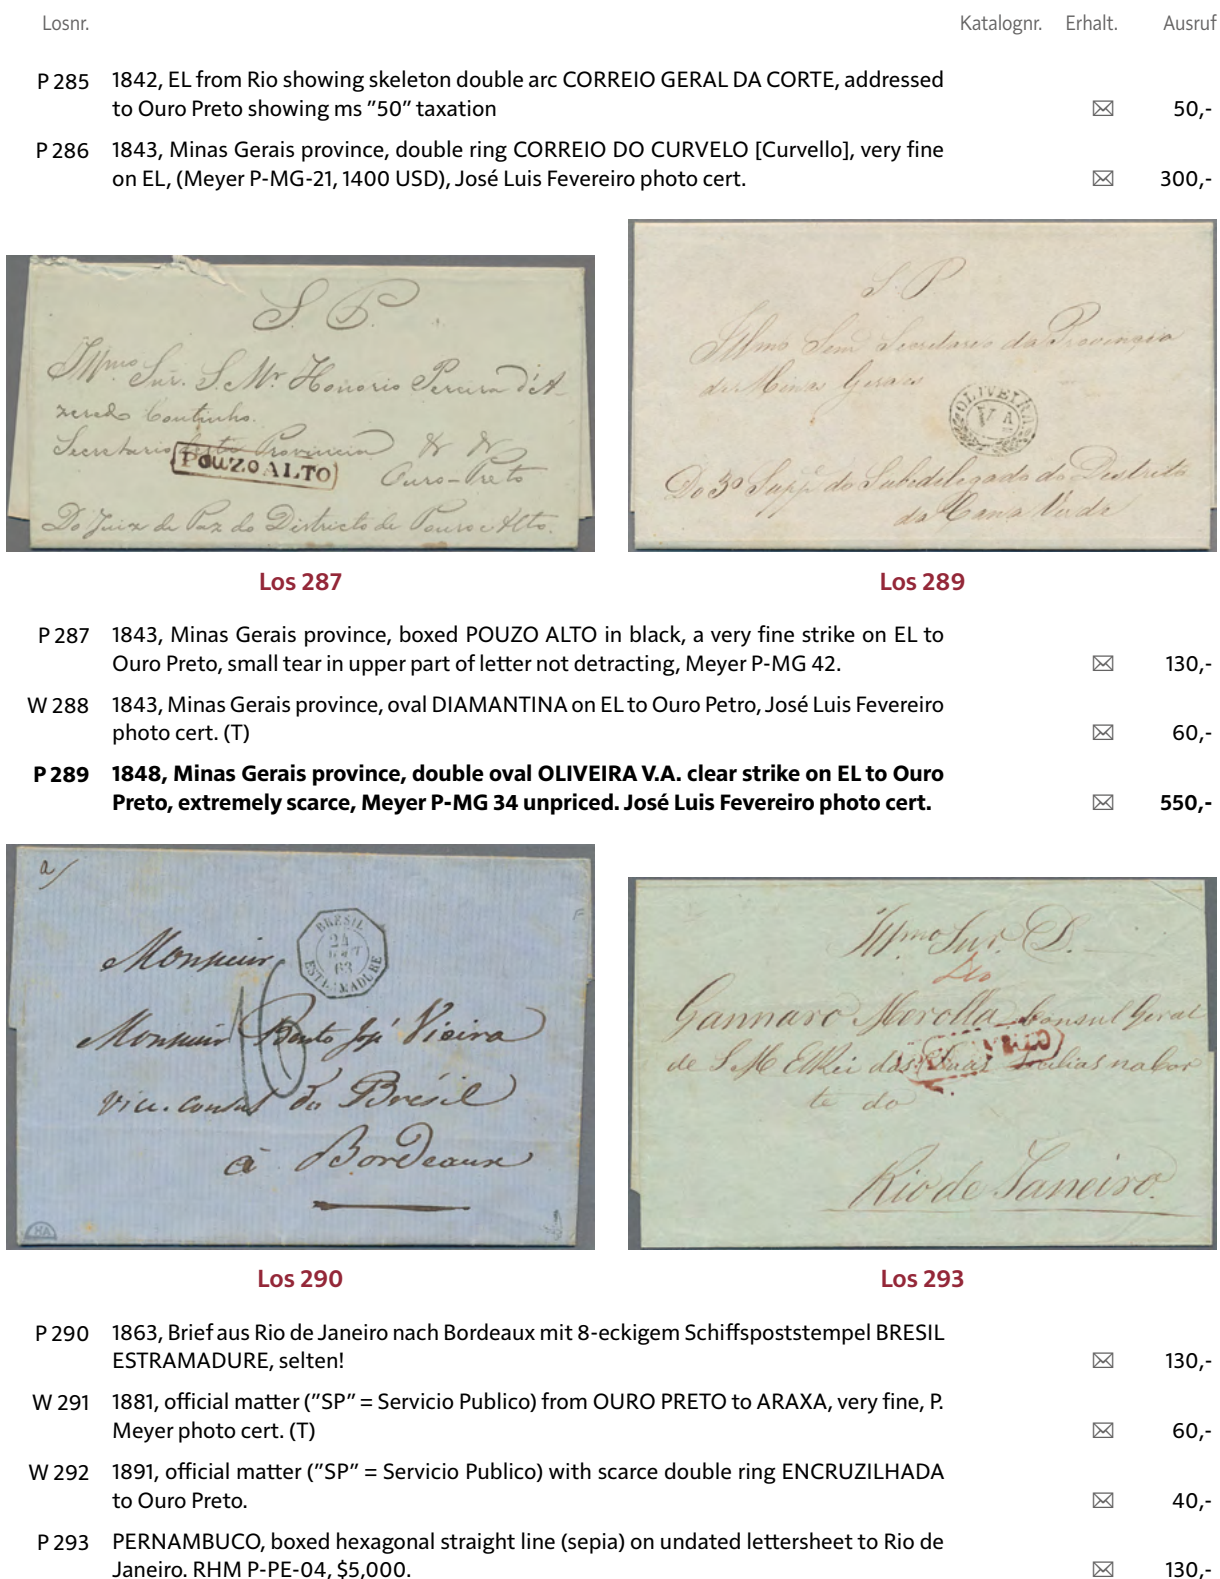 Losnr. Katalognr. Erhalt. Ausruf
P 285 1842, EL from Rio showing skeleton double arc CORREIO GERAL DA CORTE, addressed
to Ouro Preto showing ms "50" taxation ✉ 50,-
P 286 1843, Minas Gerais province, double ring CORREIO DO CURVELO [Curvello], very fine
on EL, (Meyer P-MG-21, 1400 USD), José Luis Fevereiro photo cert. ✉ 300,-
S. P.
Illmo Snr. S. Mr Honorio Pereira d'A-
zeredo Coutinho.
Secretario desta Provincia
POUZO ALTO
Ouro-Preto
Do Juiz de Paz do Districto de Pouso Alto.
S. P.
Illmo Snr Secretario da Provincia
de Minas Geraes
OLIVEIRA
VA
Do 3º Supp. do Subdelegado do Districto
da Canna Verde
Los 287 Los 289
P 287 1843, Minas Gerais province, boxed POUZO ALTO in black, a very fine strike on EL to
Ouro Preto, small tear in upper part of letter not detracting, Meyer P-MG 42. ✉ 130,-
W 288 1843, Minas Gerais province, oval DIAMANTINA on EL to Ouro Petro, José Luis Fevereiro
photo cert. (T) ✉ 60,-
P 289 1848, Minas Gerais province, double oval OLIVEIRA V.A. clear strike on EL to Ouro
Preto, extremely scarce, Meyer P-MG 34 unpriced. José Luis Fevereiro photo cert. ✉ 550,-
a/
BRESIL
24
63
ESTREMADURE
Monsieur
16
Monsieur Bento José Vieira
vice. consul du Brésil
à Bordeaux
Illmo Snr. D.
Gannaro Merolla Consul Geral
de S. M. ElRei das Duas Sicilias na Cor
te do
Rio de Janeiro.
Los 290 Los 293
P 290 1863, Brief aus Rio de Janeiro nach Bordeaux mit 8-eckigem Schiffspoststempel BRESIL
ESTRAMADURE, selten! ✉ 130,-
W 291 1881, official matter ("SP" = Servicio Publico) from OURO PRETO to ARAXA, very fine, P.
Meyer photo cert. (T) ✉ 60,-
W 292 1891, official matter ("SP" = Servicio Publico) with scarce double ring ENCRUZILHADA
to Ouro Preto. ✉ 40,-
P 293 PERNAMBUCO, boxed hexagonal straight line (sepia) on undated lettersheet to Rio de
Janeiro. RHM P-PE-04, $5,000. ✉ 130,-